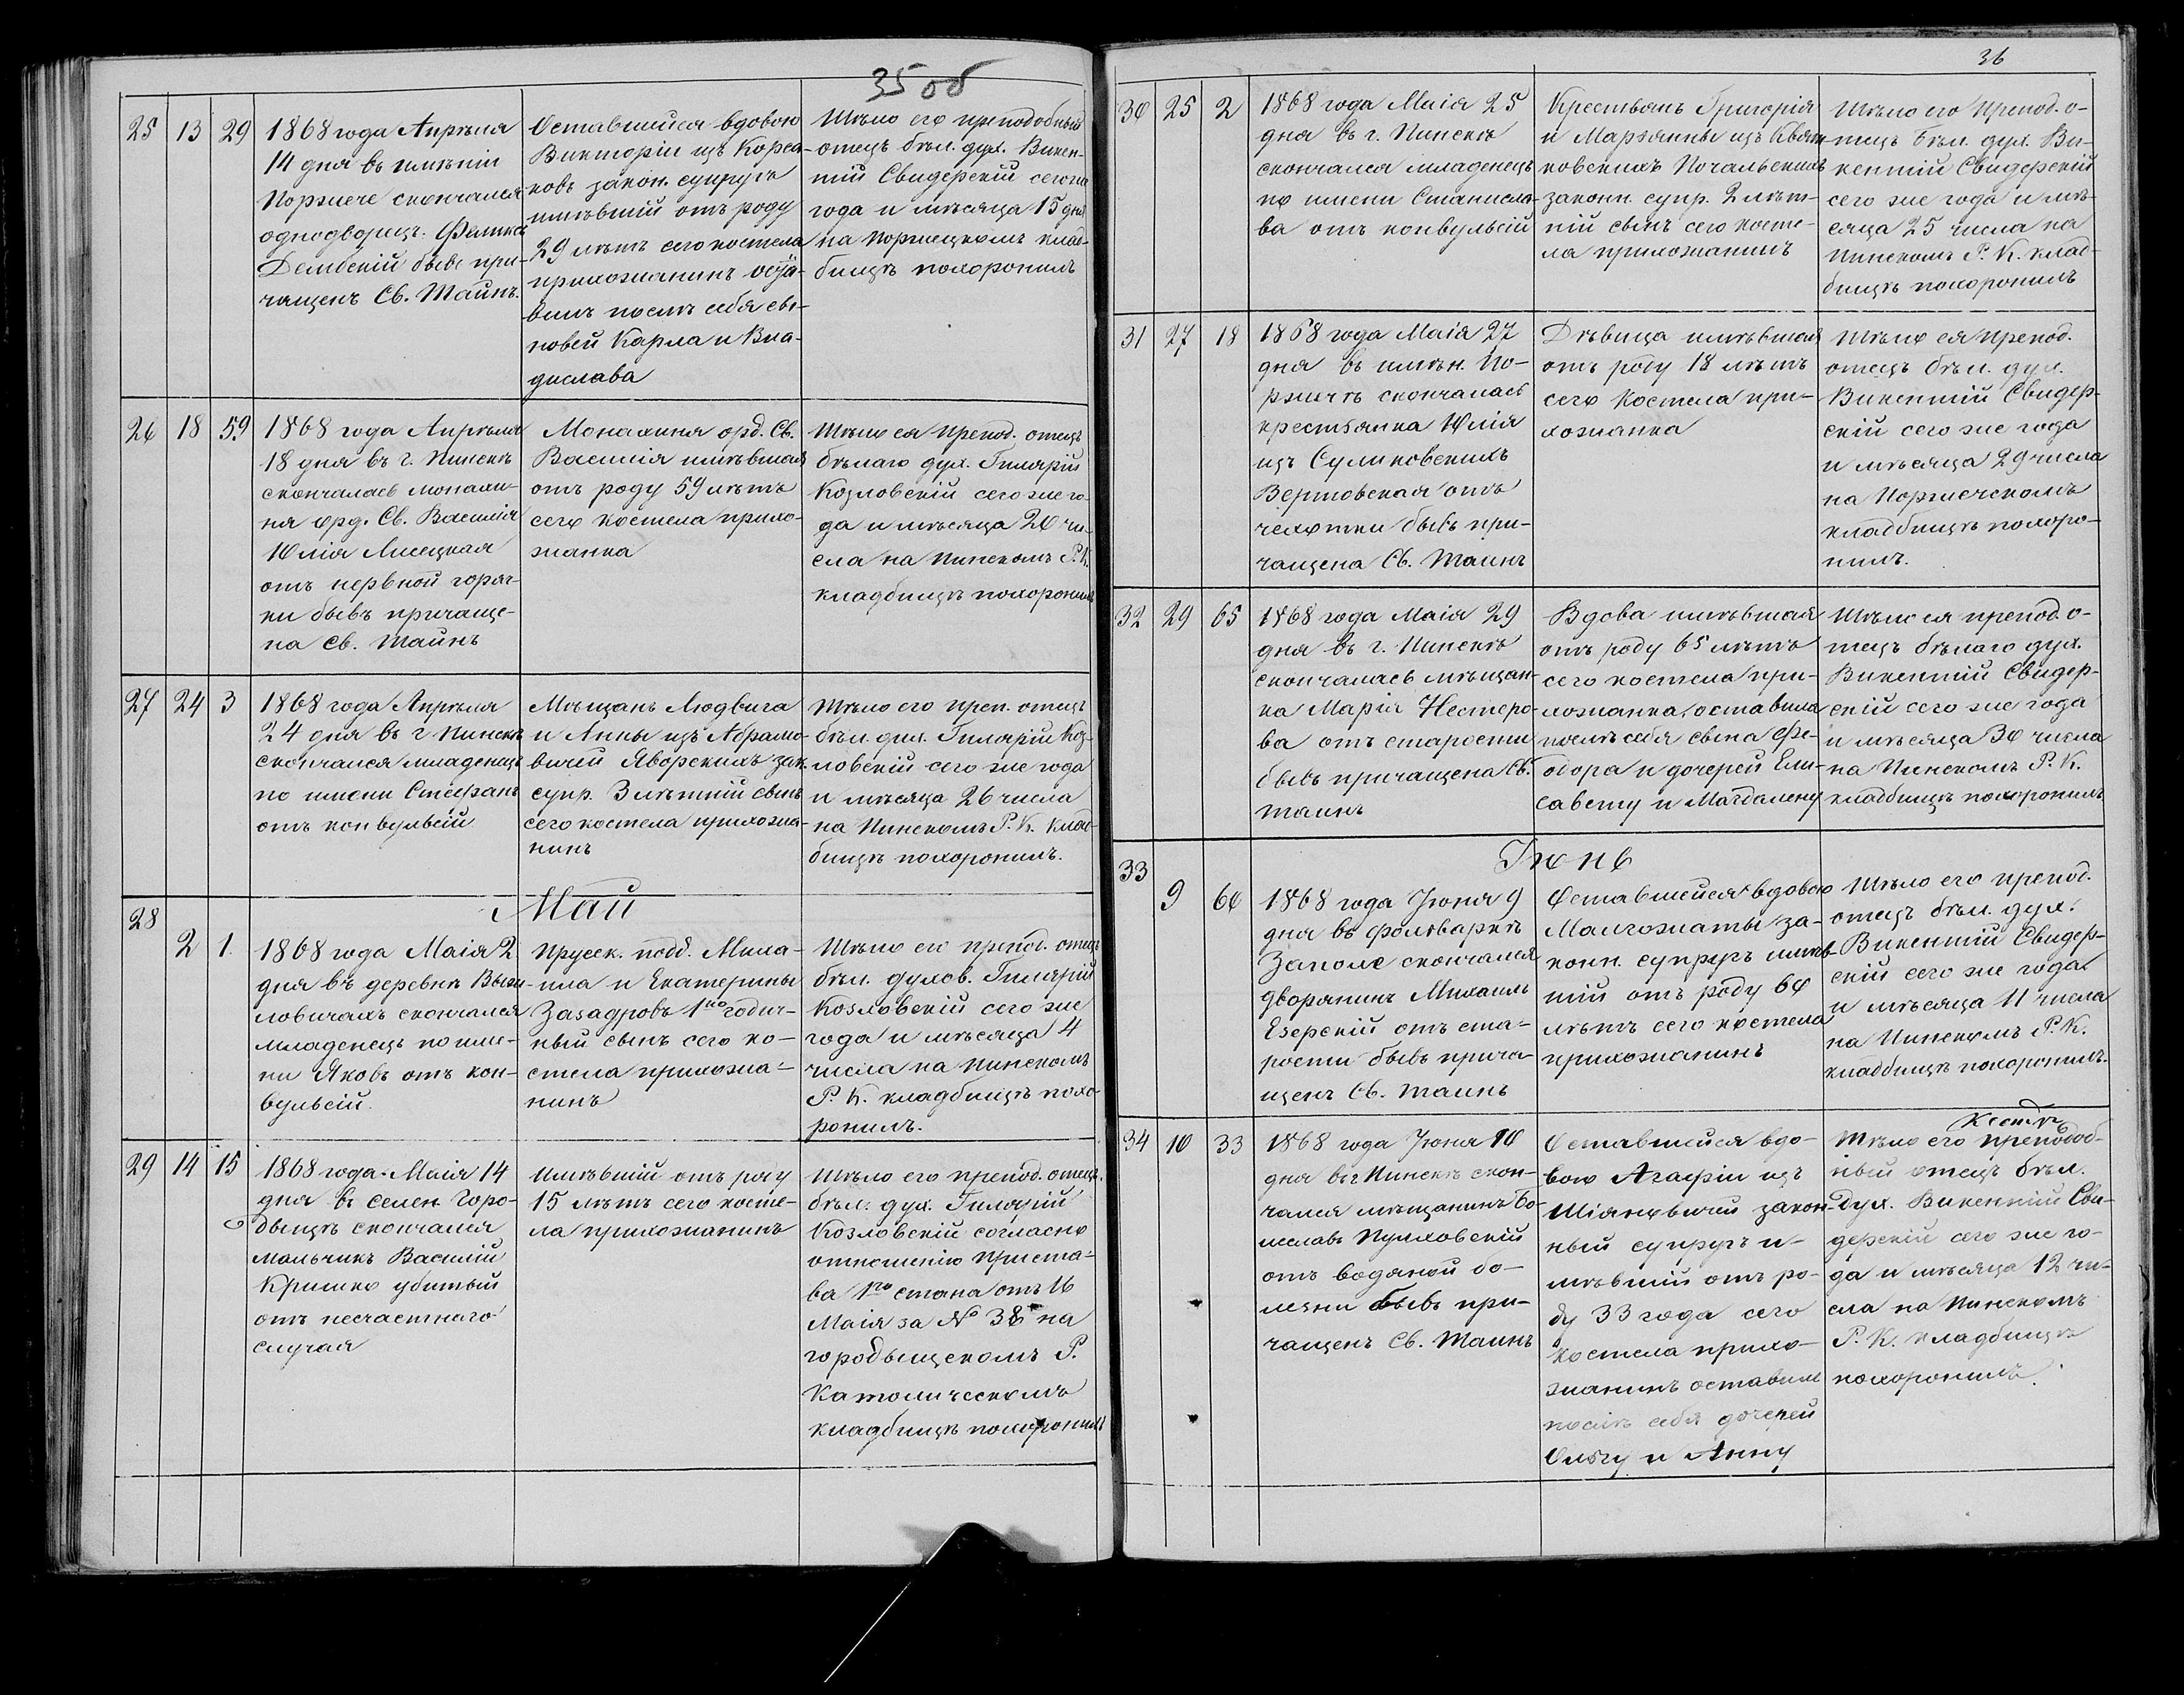 35 об
25 13 29
1868 года Апрѣля
14 дня въ имѣніи
Поржече скончался
однодворецъ Феликс
Дембскій бывъ при-
чащенъ Св. Таинъ.
Оставшейся вдовою
Викторіи изъ Корса-
ковъ закон. супругъ
имѣвшій отъ роду
29 лѣтъ сего костела
прихожанинъ оста-
вилъ послѣ себя сы-
новей Карла и Вла-
дислава
Тѣло его преподобный
отецъ бѣл. дух. Викен-
тій Свидерскій сего же
года и мѣсяца 15 дня
на Поржецкомъ клад-
бищѣ похоронилъ
26 18 59
1868 года Апрѣля
18 дня въ г. Пинскѣ
скончалась монахи-
ня орд. Св. Василія
Юлія Лисецкая
отъ нервной горяч-
ки бывъ причаще-
на Св. Таинъ
Монахиня орд. Св.
Василія имѣвшая
отъ роду 59 лѣтъ
сего костела прихо-
жанка
Тѣло ея препод. отецъ
бѣлаго дух. Гилярій
Козловскій сего же го-
да и мѣсяца 20 чи-
сла на Пинскомъ Р. К.
кладбищѣ похоронилъ
27 24 3
1868 года Апрѣля
24 дня въ г Пинскѣ
скончался младенецъ
по имени Стефанъ
отъ конвульсій
Мѣщанъ Людвига
и Анны изъ Абрамо-
вичей Яворскихъ зак.
супр. 3 лѣтній сынъ
сего костела прихожа-
нинъ
Тѣло его преп. отецъ
бѣл. дух. Гилярій Коз-
ловскій сего же года
и мѣсяца 26 числа
на Пинскомъ Р. К. клад-
бищѣ похоронилъ.
Май
28
2 1.
1868 года Маія 2
дня въ деревнѣ
ловичахъ скончался
младенецъ по име-
ни Яковъ отъ кон-
вульсій.
Прусск. подд. Миха-
ила и Екатерины
1но годич-
ный сынъ сего ко-
стела прихожа-
нинъ
Тѣло его препод. отецъ
бѣл. духов. Гилярій
Козловскій сего же
года и мѣсяца 4
числа на Пинскомъ
Р. К. кладбищѣ похо-
ронилъ.
29 14 15
1868 года Маія 14
дня въ селен Горо-
дыщѣ скончался
мальчикъ Василій
Кришко убитый
отъ несчастнаго
случая
Имѣвшій отъ роду
15 лѣтъ сего косте-
ла прихожанинъ
Тѣло его препод. отецъ
бѣл. дух. Гилярій
Козловскій согласно
отношенію Приста-
ва 1го стана отъ 16
Маія за № на
городыщскомъ Р.
Католическомъ
кладбищѣ похоронилъ
36
30 25 2
1868 года Маія 25
дня въ г. Пинскѣ
скончался младенецъ
по имени Станисла-
ва отъ конвульсій
Крестьянъ Григорія
и Марьянны изъ
ковскихъ Почальскихъ
законн. супр. 2 лѣт-
ній сынъ сего косте-
ла прихожанинъ
Тѣло его препод. о-
тецъ бѣл. дух. Ви-
кентій Свидерскій
сего же года и мѣ-
сяца 25 числа на
Пинскомъ Р. К. клад-
бищѣ похоронилъ
31 27 18
1868 года Маія 27
дня въ имѣн. По-
ржичѣ скончалась
крестьянка Юлія
изъ Суликовскихъ
Вертовская отъ
чехотки бывъ при-
чащена Св. Таинъ
Дѣвица имѣвшая
отъ роду 18 лѣтъ
сего костела при-
хожанка
Тѣло ея препод.
отецъ бѣл. дух.
Викентій Свидер-
скій сего же года
и мѣсяца 29 числа
на Поржеческомъ
кладбищѣ похоро-
нилъ.
32 29 65
1868 года Маія 29
дня въ г. Пинскѣ
скончалась мѣщан-
ка Марія Нестеро-
ва отъ старости
бывъ причащена Св.
Таинъ
Вдова имѣвшая
отъ роду 65 лѣтъ
сего костела при-
хожанка, оставила
послѣ себя сына Фе-
одора и дочерей Ели-
савету и Магдалену
Тѣло ея препод. о-
тецъ бѣлаго дух.
Викентій Свидер-
скій сего же года
и мѣсяца 30 числа
на Пинскомъ Р. К.
кладбищѣ похоронилъ
Іюнь
33
9 60
1868 года Іюня 9
дня въ фольваркѣ
Заполе скончался
дворянинъ Михаилъ
Езерскій отъ ста-
рости бывъ прича-
щенъ Св. Таинъ
Оставшейся вдовою
Малгожаты за-
конн. супругъ имѣв-
шій отъ роду 60
лѣтъ сего костела
прихожанинъ
Тѣло его препод.
отецъ бѣл. дух.
Викентій Свидер-
скій сего же года
и мѣсяца 11 числа
на Пинскомъ Р. К.
кладбищѣ похоронилъ.
34 10 33
1868 года Іюня 10
дня въ г Пинскѣ скон-
чался мѣщанинъ Бо-
леславъ Пулховскій
отъ водяной бо-
лезни бывъ при-
чащенъ Св. Таинъ
Оставшейся вдо-
вою Агафіи изъ
Шіянцевичей закон-
ный супругъ и-
мѣвшій отъ ро-
ду 33 года сего
костела прихо-
жанинъ оставилъ
послѣ себя дочерей
Ольгу и Анну
Ксендзъ
Тѣло его преподоб-
ный отецъ бѣл.
дух. Викентій Сви-
дерскій сего же го-
да и мѣсяца 12 чи-
сла на Пинскомъ
Р. К. кладбищѣ
похоронилъ.